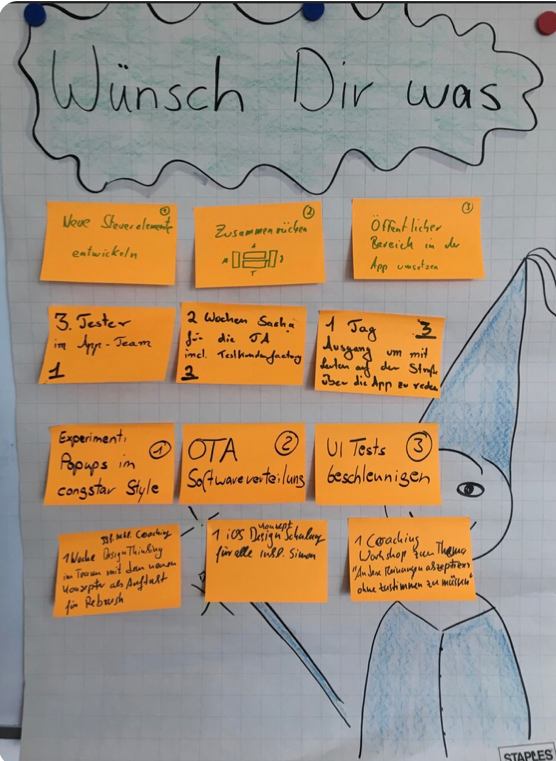 Wünsch Dir was
1
Neue Steuerelemente
entwickeln
2
Zusammenrücken
3
Öffentlicher
Bereich in der
App umsetzen
3. Tester
im App-Team
1
2 Wochen Sascha
für die TA
incl. Testkundenfactory
2
1 Tag
3
Ausgang um mit
Leuten auf der Straße
über die App zu reden
Experiment:
1
Popups in
congstar Style
OTA
2
Softwareverteilung
UI Tests
3
beschleunigen
Coaching
1 Woche Design Thinking
im Team mit dem neuen
Konzepter als Auftakt
für Rebrush
konzept
1 iOS Design Schulung
für alle insp. Simon
1 Coaching
Workshop zum Thema
"Andere Meinungen akzeptieren
ohne zustimmen zu müssen"
STAPLES